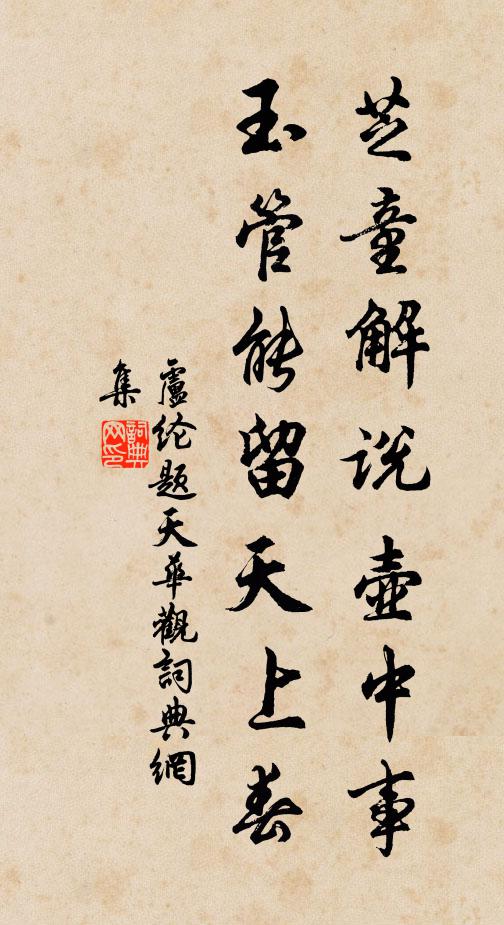 芝童解说壶中事
玉管能留天上春
盧纶题天华觀詞典網
集
詞典
网印